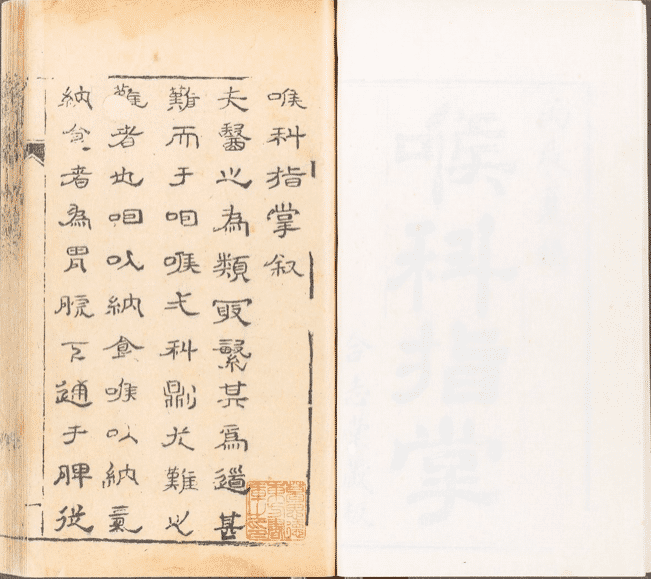 喉科指掌
喉科指掌叙
夫醫之為類最繁其為道甚
難而于咽喉弌科則尤難之
難者也咽以納食喉以納氣
納食者為胃脘下通于脾從